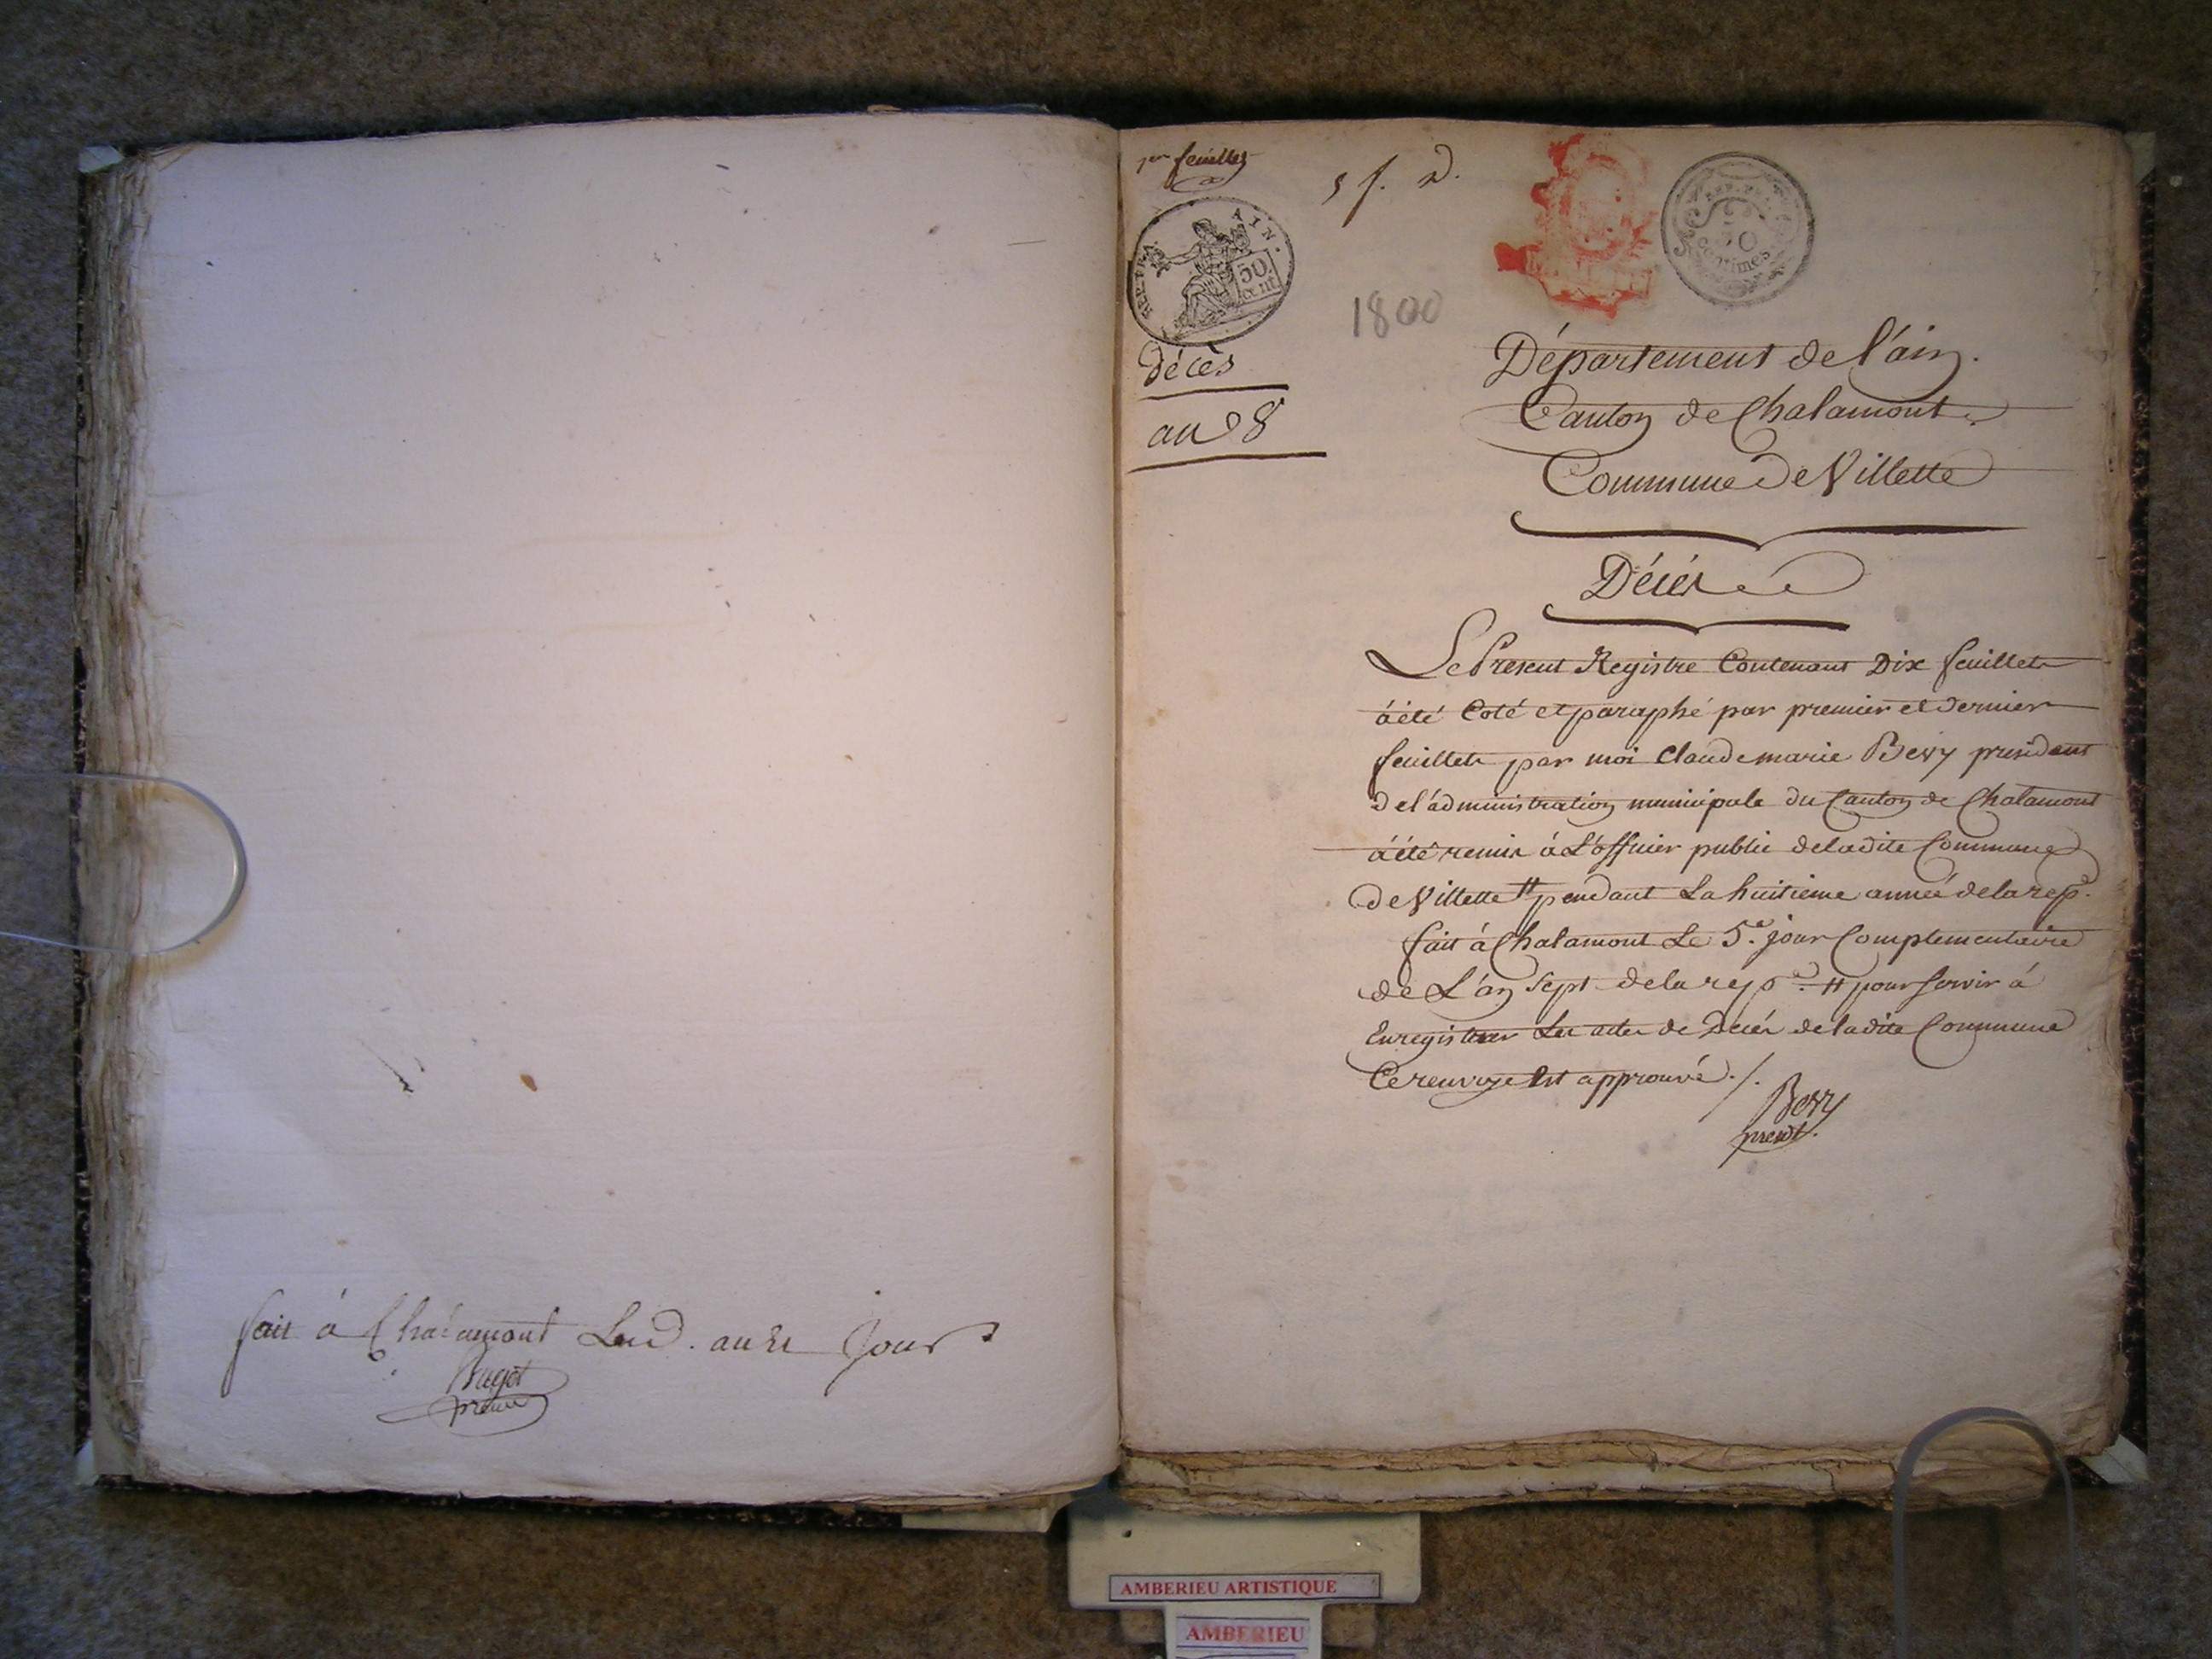 fait à Chalamont Led. an et Jour
Buget
1er feuillet
5 f. D.
REP. FRA. AIN.
50 cent
50
centimes
1800
décès
an 8
Département de l'ain.
Canton de Chalamont.
Commune de Villette
Décés
Le Present Registre Contenant Dix feuillets
à été Coté et paraphé par premier et dernier
feuillets par moi Claude marie Bevy president
de l'administration municipale du Canton de Chalamont
à été remis à L'officier public de ladite Commune
de Villette # pendant La huitieme année de la rep.e
fait à Chalamont Le 5.e jour Complementaire
de L'an Sept de la rep.e # pour servir à
Enregistrer Les actes de Décés de ladite Commune
Ce renvoye Est approuvé ./.
Bevy
presidt.
AMBERIEU ARTISTIQUE
AMBERIEU